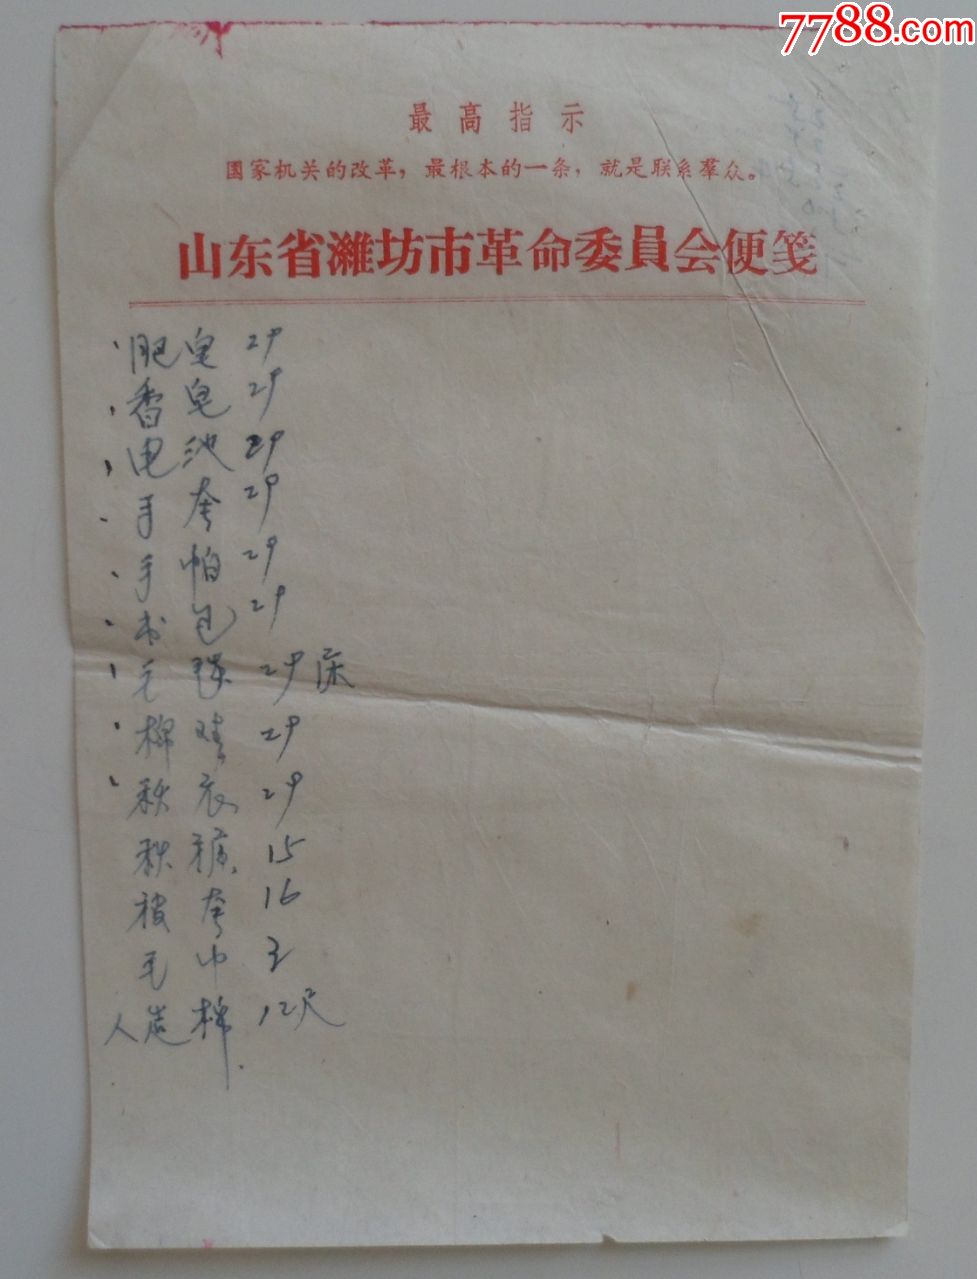 7788.com
最高指示
国家机关的改革，最根本的一条，就是联系羣众。
山东省濰坊市革命委員会便笺
肥皂 29
香皂 29
电池 29
手套 29
手帕 29
书包 29
毛 29 床
棉 29
秋衣 29
秋裤 15
被套 16
毛巾 3
人造棉 12尺